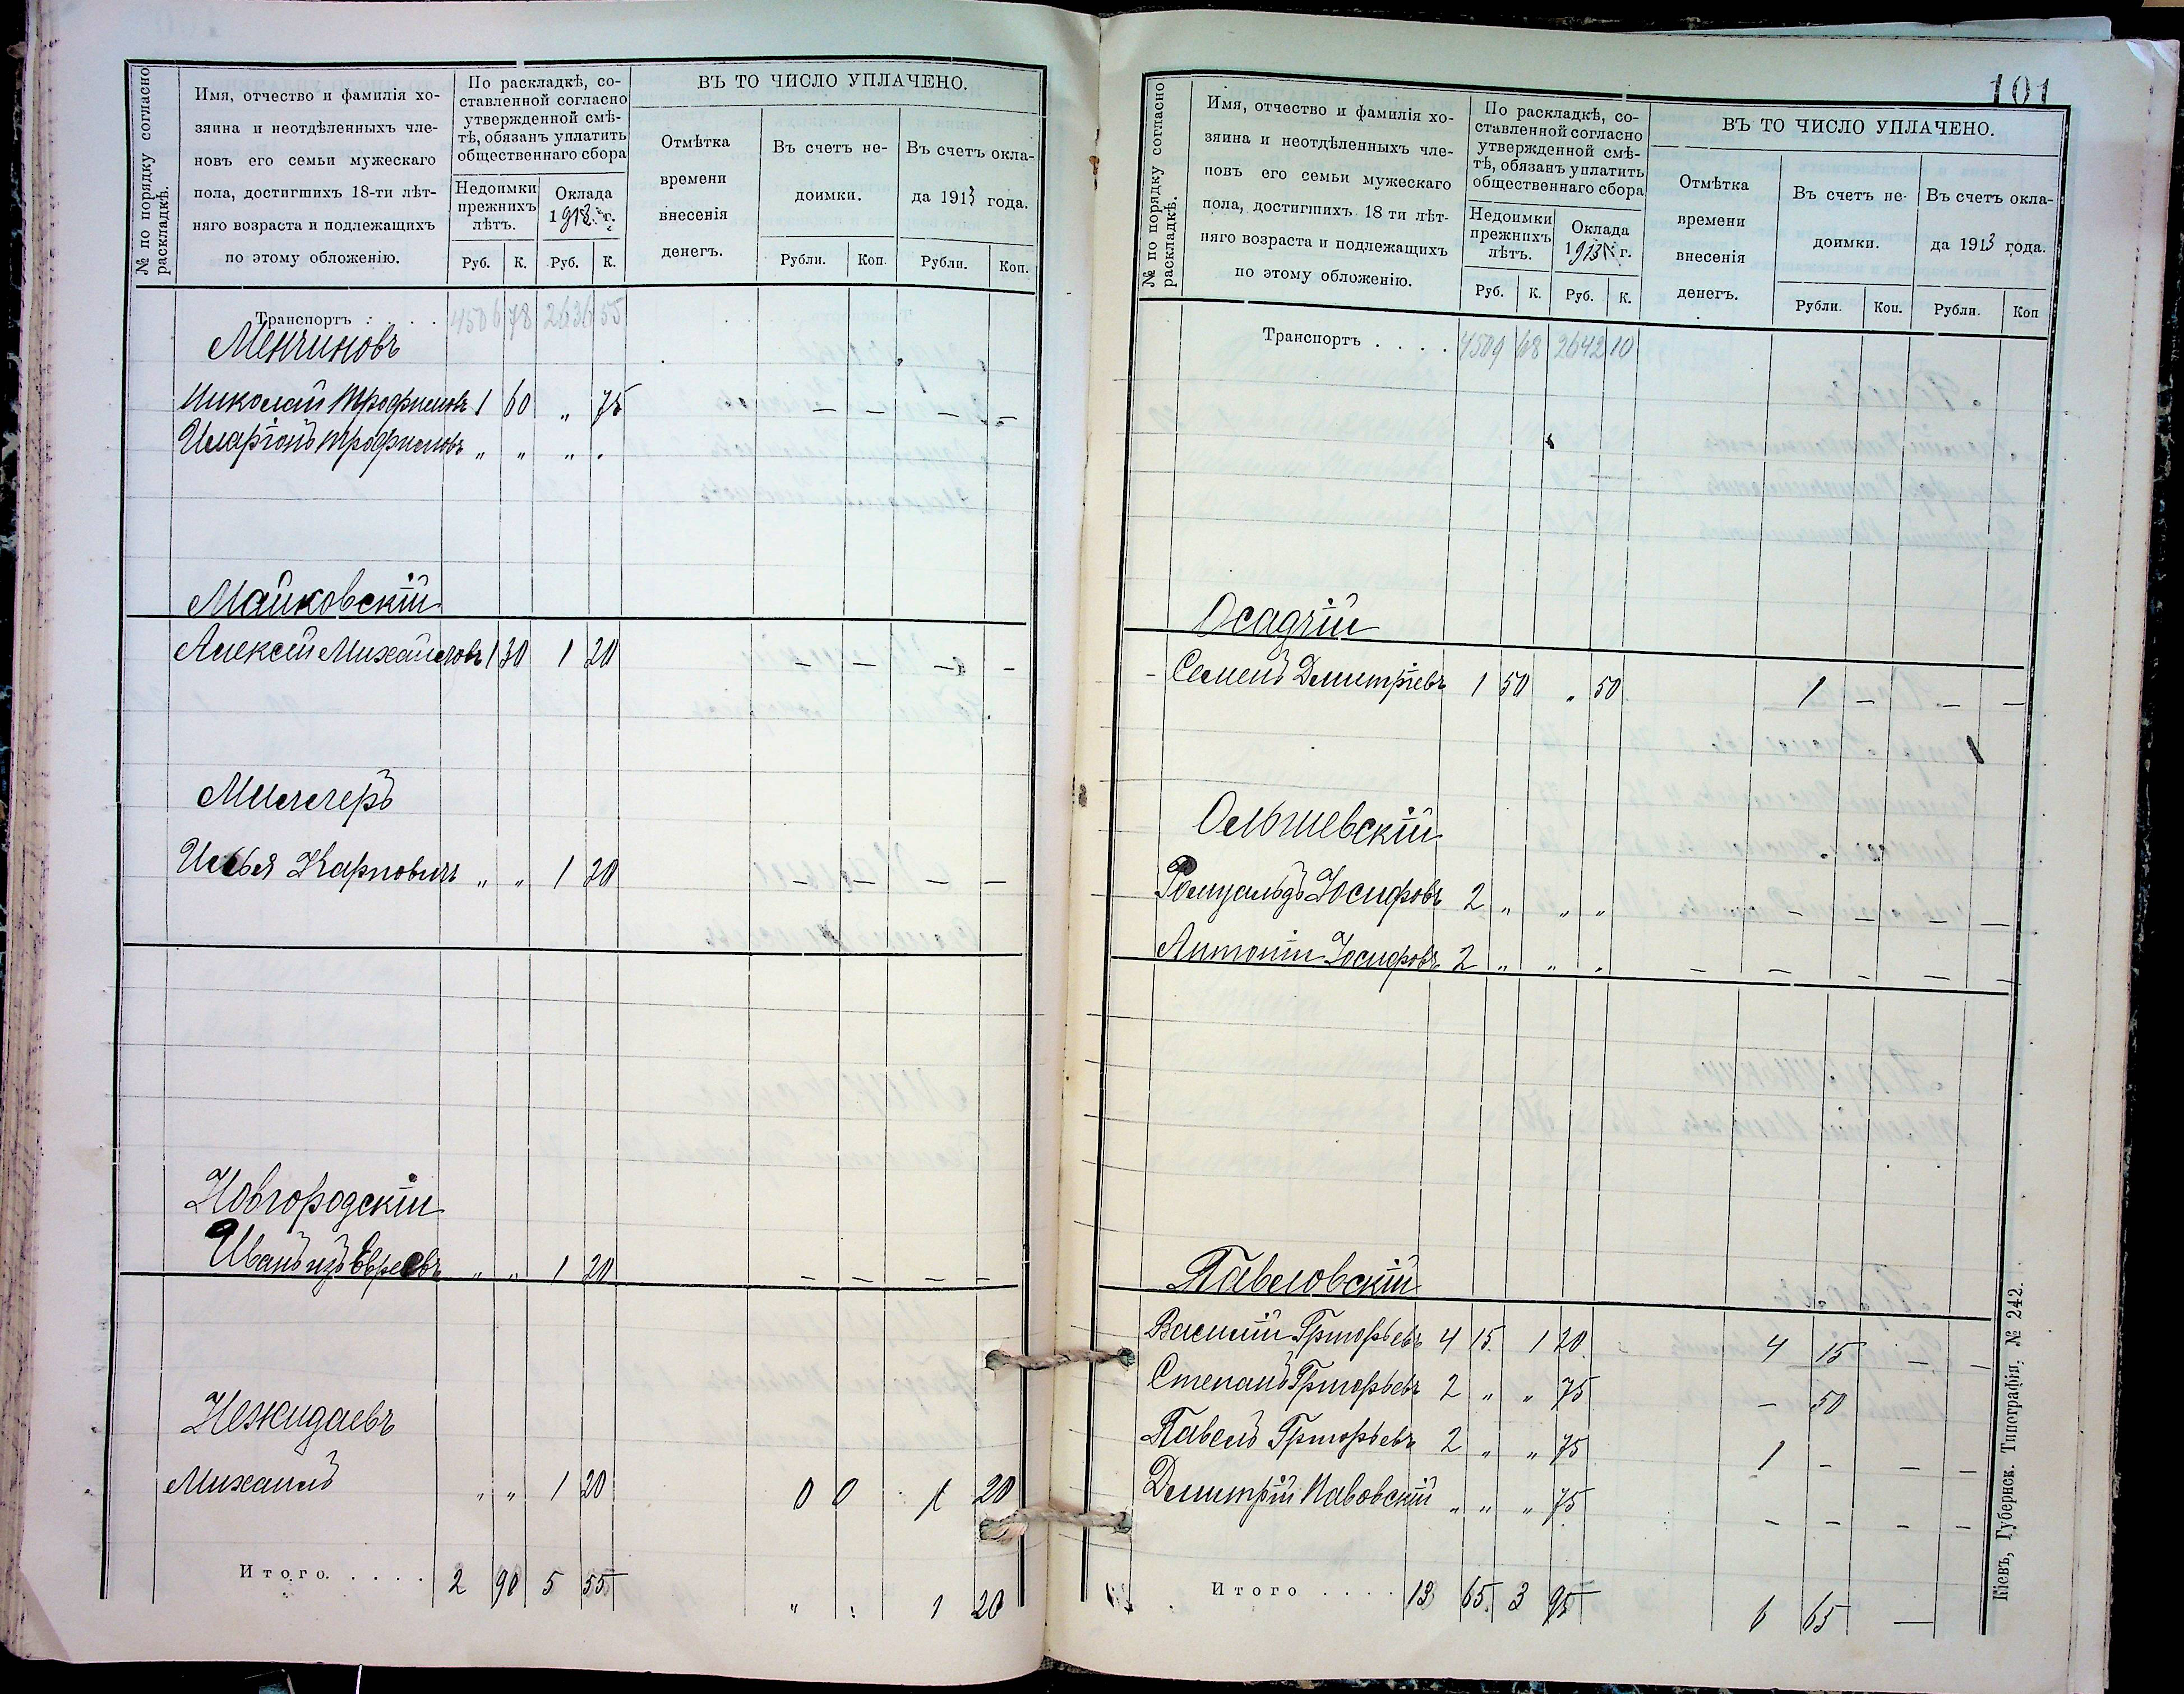 № по порядку согласно раскладкѣ.
Имя, отчество и фамилія хо-
зяина и неотдѣленныхъ чле-
новъ его семьи мужескаго
пола, достигшихъ 18-ти лѣт-
няго возраста и подлежащихъ
по этому обложенію.
По раскладкѣ, со-
ставленной согласно
утвержденной смѣ-
тѣ, обязанъ уплатить
общественнаго сбора
Недоимки прежнихъ лѣтъ.
Оклада 1913 г.
Руб. К. Руб. К.
ВЪ ТО ЧИСЛО УПЛАЧЕНО.
Отмѣтка времени внесенія денегъ.
Въ счетъ не-
доимки.
Въ счетъ окла-
да 1913 года.
Рубли. Коп. Рубли. Коп.
Транспортъ . . . . 4506 78 2636 55
Менчиновъ
Николай Трофимовъ 1 60 „ 75 — — — —
Иларіонъ Трофимовъ „ „ „ „
Майковскій
Алексѣй Михайловъ 1 30 1 20 — — — —
Миллеръ
Илья Карповичъ „ „ 1 20 — — — —
Новгородскій
Иванъ изъ Евреевъ „ „ 1 20 — — — —
Нежидаевъ
Михаилъ „ „ 1 20 0 0 1 20
Итого. . . . . 2 90 5 55 „ : 1 20
101
№ по порядку согласно раскладкѣ.
Имя, отчество и фамилія хо-
зяина и неотдѣленныхъ чле-
новъ его семьи мужескаго
пола, достигшихъ 18 ти лѣт-
няго возраста и подлежащихъ
по этому обложенію.
По раскладкѣ, со-
ставленной согласно
утвержденной смѣ-
тѣ, обязанъ уплатить
общественнаго сбора
Недоимки прежнихъ лѣтъ.
Оклада 1913 г.
Руб. К. Руб. К.
ВЪ ТО ЧИСЛО УПЛАЧЕНО.
Отмѣтка времени внесенія денегъ.
Въ счетъ не-
доимки.
Въ счетъ окла-
да 1913 года.
Рубли. Коп. Рубли. Коп
Транспортъ . . . . 4509 68 2642 10
Осадчій
Семенъ Дмитріевъ 1 50 „ 50 1 — — —
Ольшевскій
Ромуальдъ Іосифовъ 2 „ „ „ — — — —
Антоній Іосифовъ 2 „ „ „ — — — — —
Павловскій
Василій Григорьевъ 4 15 1 20 4 15 — —
Степанъ Григорьевъ 2 „ „ 75 — 50
Павелъ Григорьевъ 2 „ „ 75 1 — — —
Дмитрій Павовскій „ „ „ 75 — — — —
Итого . . . . 13 65 3 95 6 65 —
Кіевъ, Губернск. Типографія, № 242.